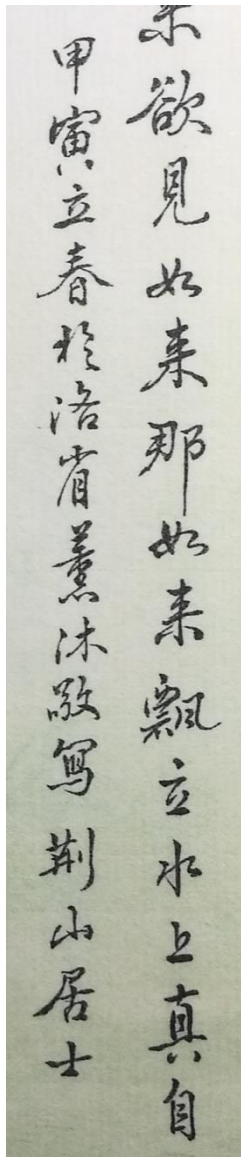 欲見如来那如来飄立水上真自
甲寅立春於洛省薰沐敬写荆山居士